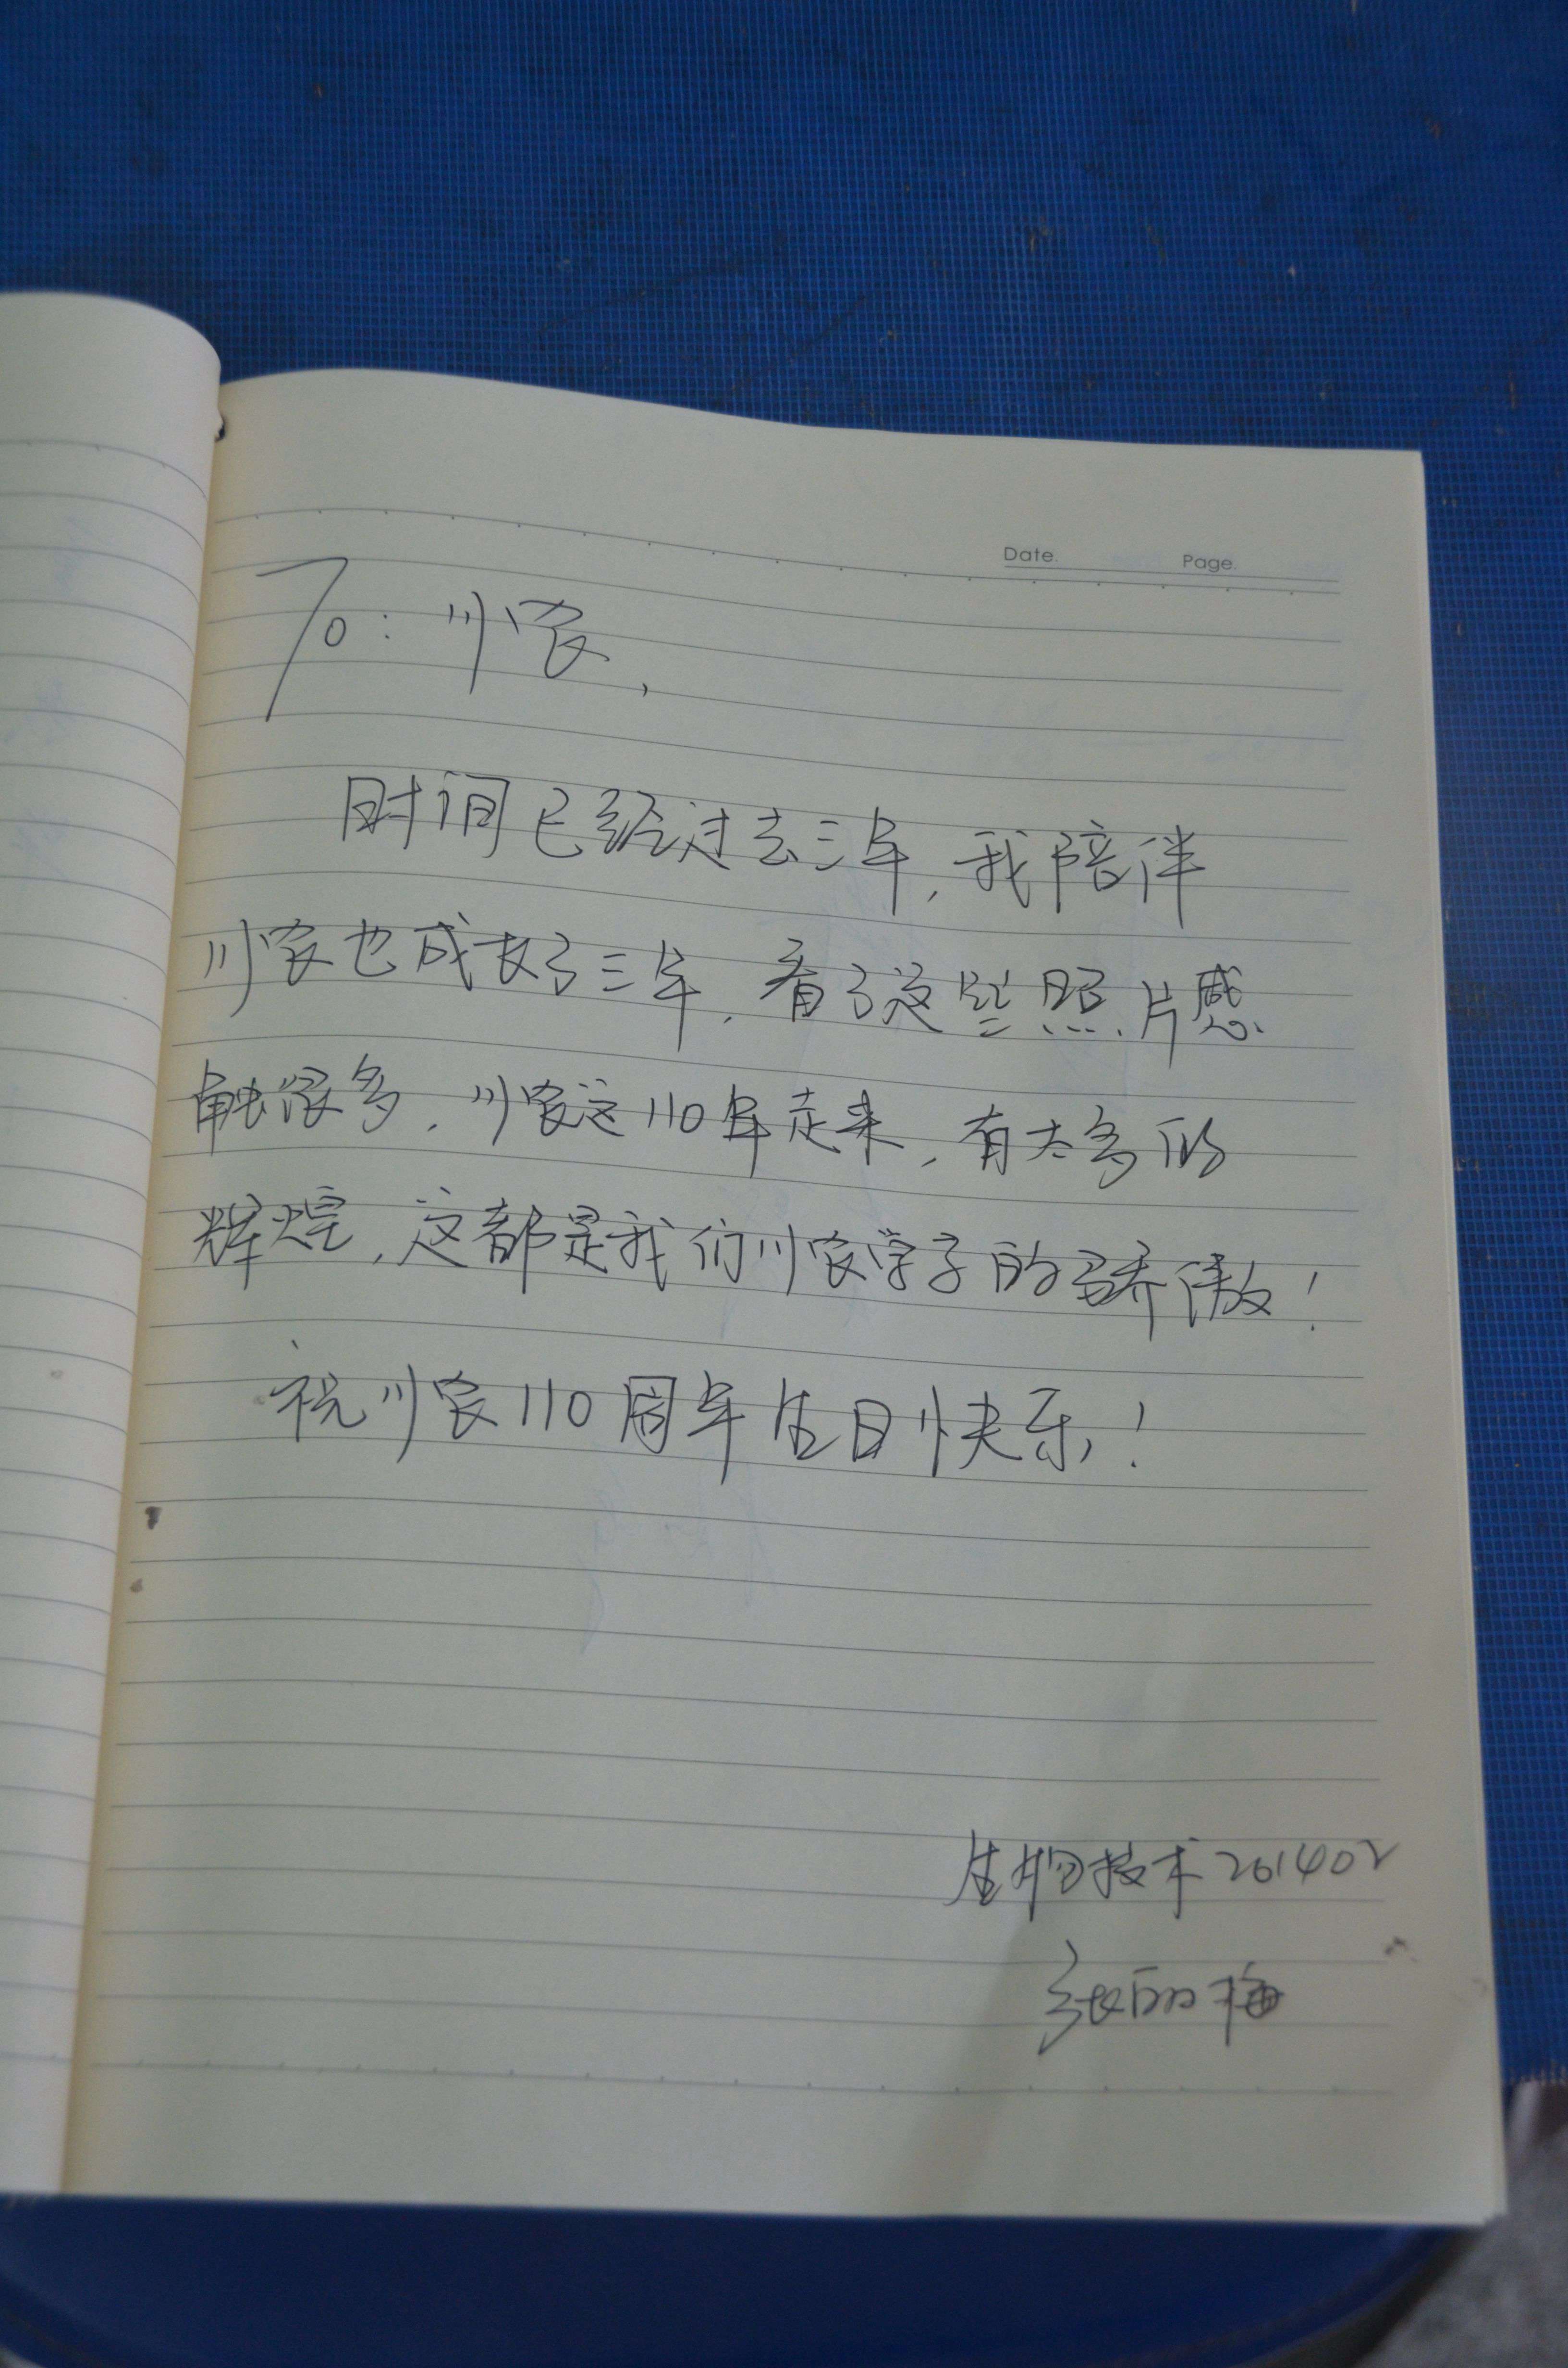 Date. Page.
To：川农，
时间已经过去三年，我陪伴
川农也成长了三年，看了这些照片感
触很多，川农这110年走来，有太多的
辉煌，这都是我们川农学子的骄傲！
祝川农110周年生日快乐！
生物技术201402
张丽梅